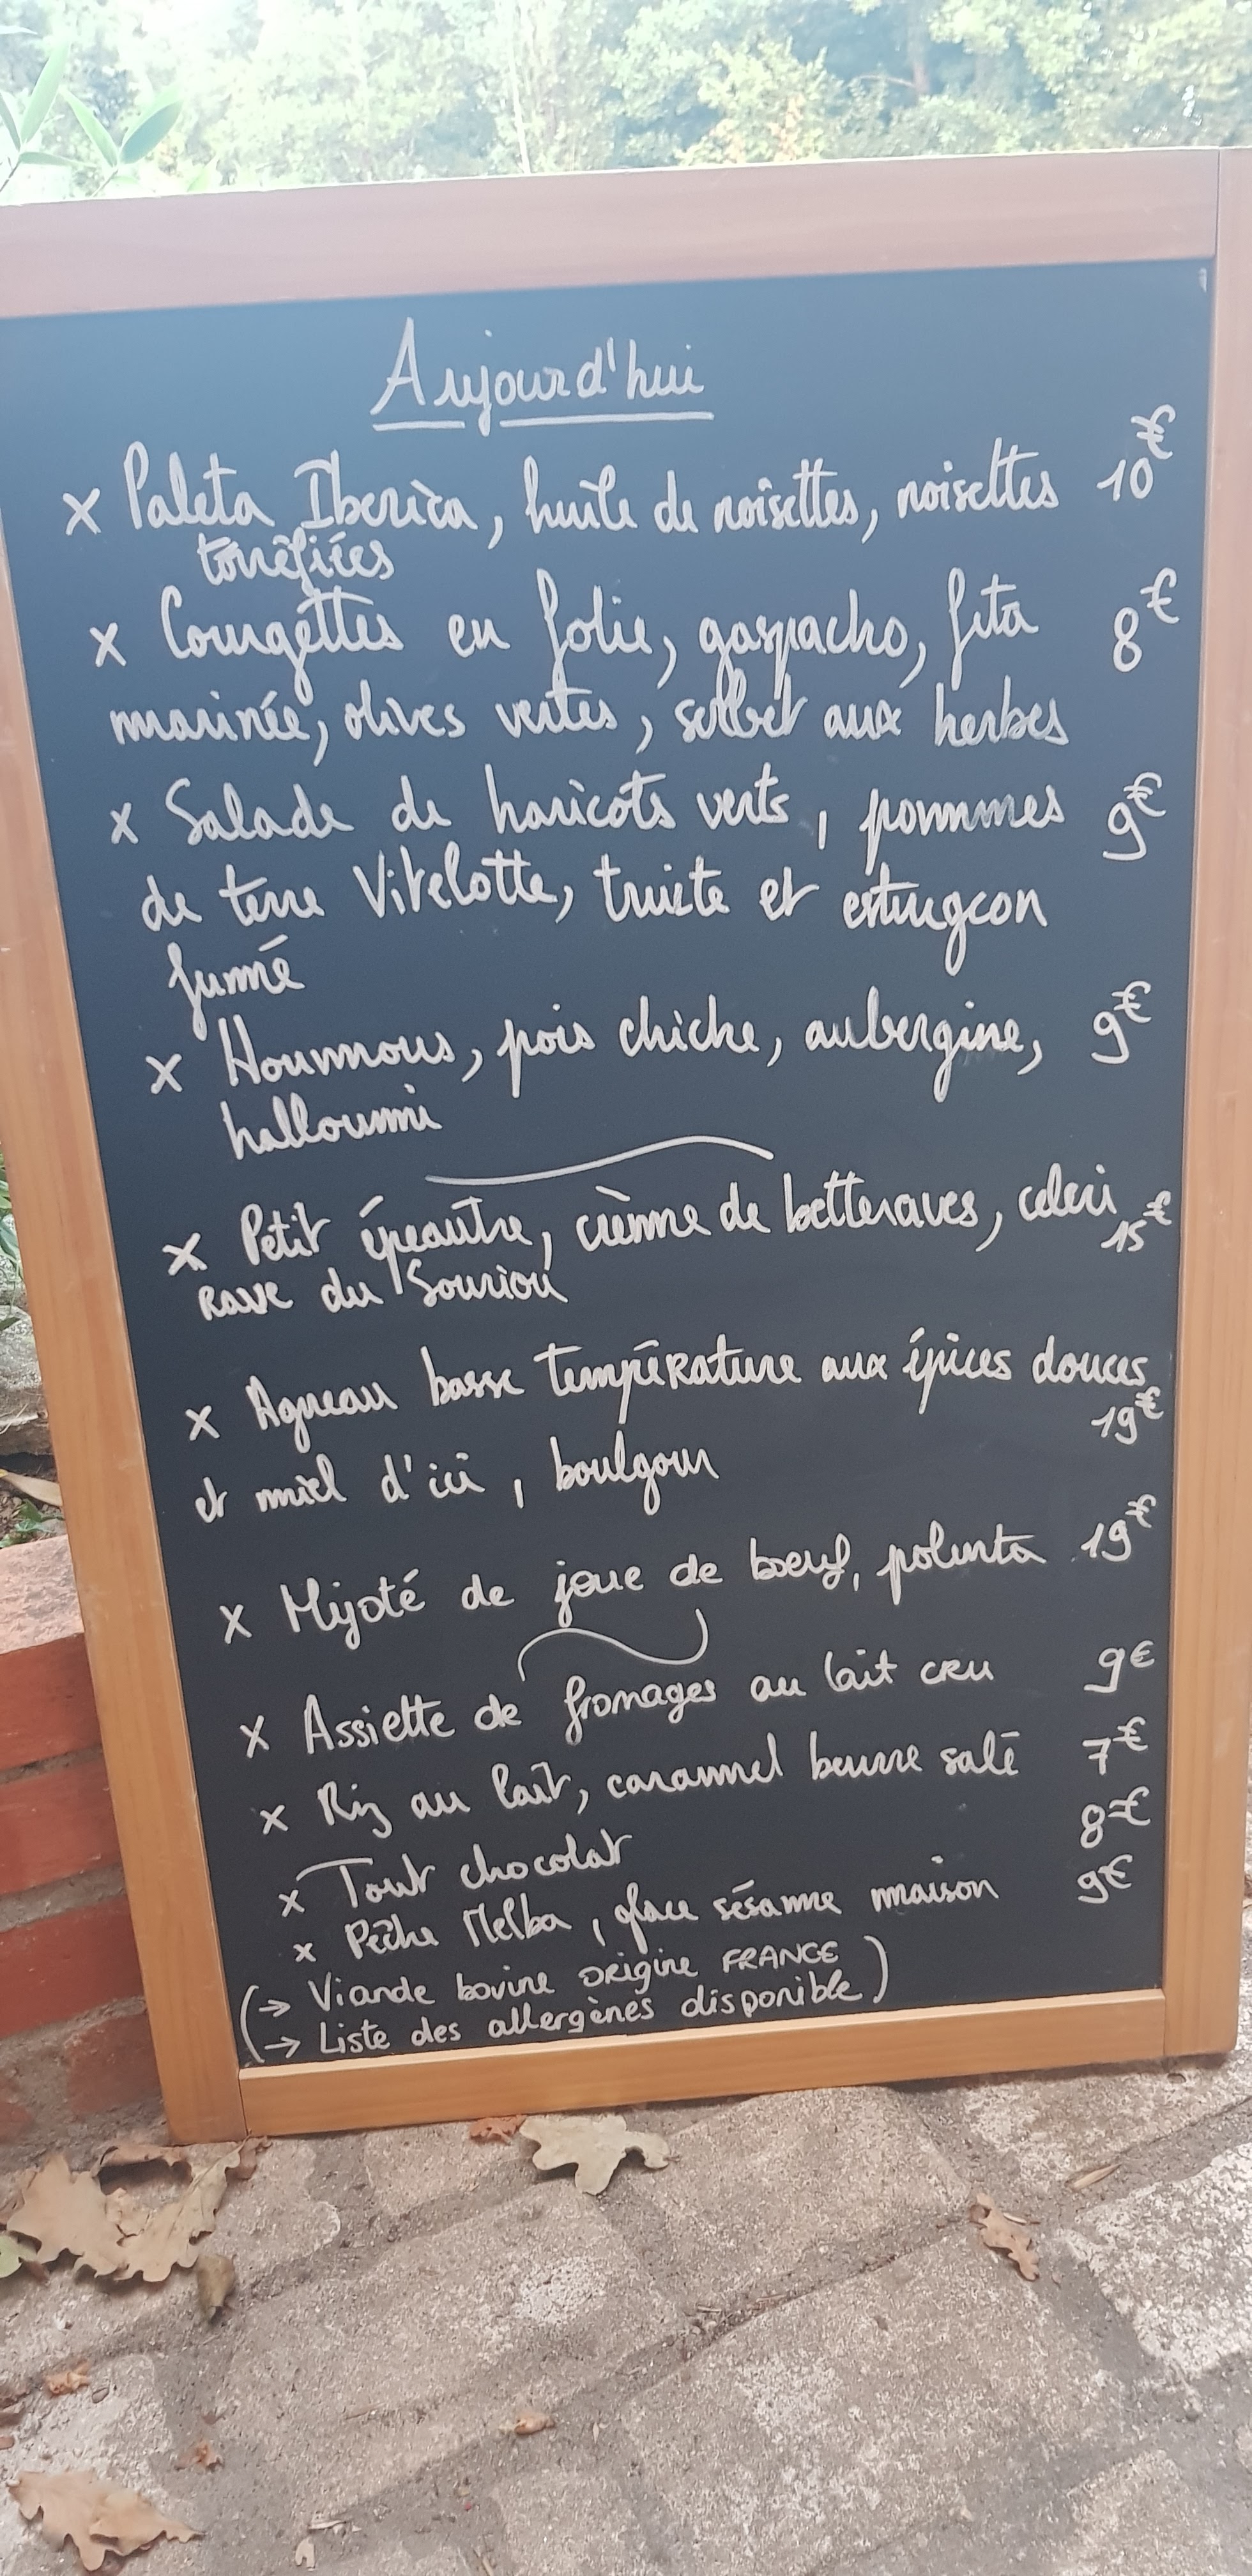 Aujourd'hui
x Paleta Iberica, huile de noisettes, noisettes 10€
torréfiées
x Courgettes en folie, gaspacho, feta 8€
marinée, olives vertes, sorbet aux herbes
x Salade de haricots verts, pommes 9€
de terre Vitelotte, truite et esturgeon
fumé
x Houmous, pois chiche, aubergine, 9€
halloumi
x Petit épeautre, crème de betteraves, celeri 15€
rave du Souriou
x Agneau basse température aux épices douces
19€
et miel d'ici, boulgour
x Mijoté de joue de boeuf, polenta 19€
x Assiette de fromages au lait cru 9€
x Riz au lait, caramel beurre salé 7€
x Tout chocolat 8€
x Pêche Melba, glace sésame maison 9€
(→ Viande bovine origine FRANCE
→ Liste des allergènes disponible)